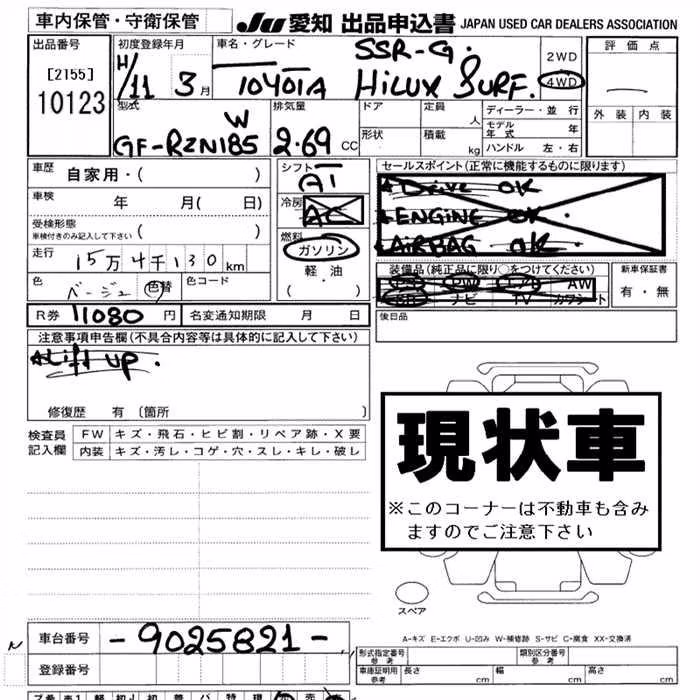 車内保管・守衛保管 JU 愛知 出品申込書 JAPAN USED CAR DEALERS ASSOCIATION
出品番号 初度登録年月 車名・グレード SSR-G. 2WD 評価点
[2155] H/11 3月 HiLUX SURF. 4WD
10123 外装 内装
型式 排気量 ドア 定員 人 ディーラー・並行
W モデル年式 年
GF-RZN185 2.69 CC 形状 積載 kg ハンドル 左・右
車歴 自家用・( ) シフト AT セールスポイント(正常に機能するものに限ります)
車検 年 月( 日) 冷房 AC Drive OK
受検形態 ENGINE OK.
車検付きのみ記入して下さい ( ) 燃料 AIRBAG OK.
走行 15万4千130km ガソリン 装備品(純正品に限り○をつけてください) 新車保証書
軽・油 SR PW エアB AW 有・無
色 ベージュ 色替 色コード (・) ナビ TV カワシート
R券 11080 円 名変通知期限 月 日 後日品
注意事項申告欄(不具合内容等は具体的に記入して下さい)
Lift up.
修復歴 有 〔箇所 〕
検査員 FW キズ・飛石・ヒビ割・リペア跡・X要
記入欄 内装 キズ・汚レ・コゲ・穴・スレ・キレ・破レ
現状車
※このコーナーは不動車も含み
ますのでご注意下さい
スペア
A-キズ E-エクボ U-凹み W-補修跡 S-サビ C-腐食 XX-交換済
車台番号 -9025821-
形式指定番号 参考 類別区分番号 参考
登録番号 車庫証明用 参考 長さ 幅 高さ